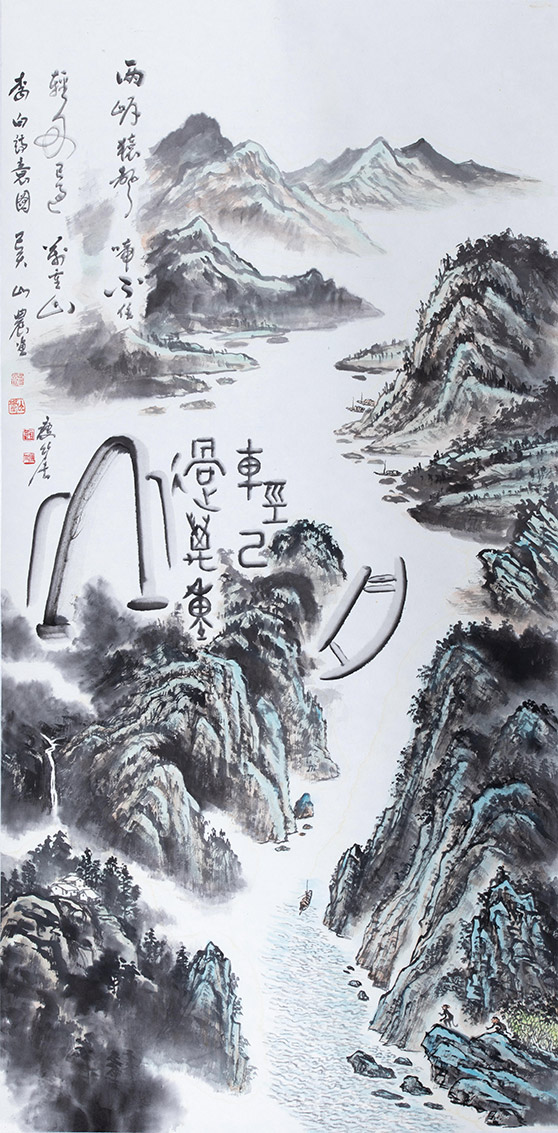 兩岸猿聲啼不住
輕舟已過萬重山
李白詩意圖 山農画
輕舟已
過萬重
山